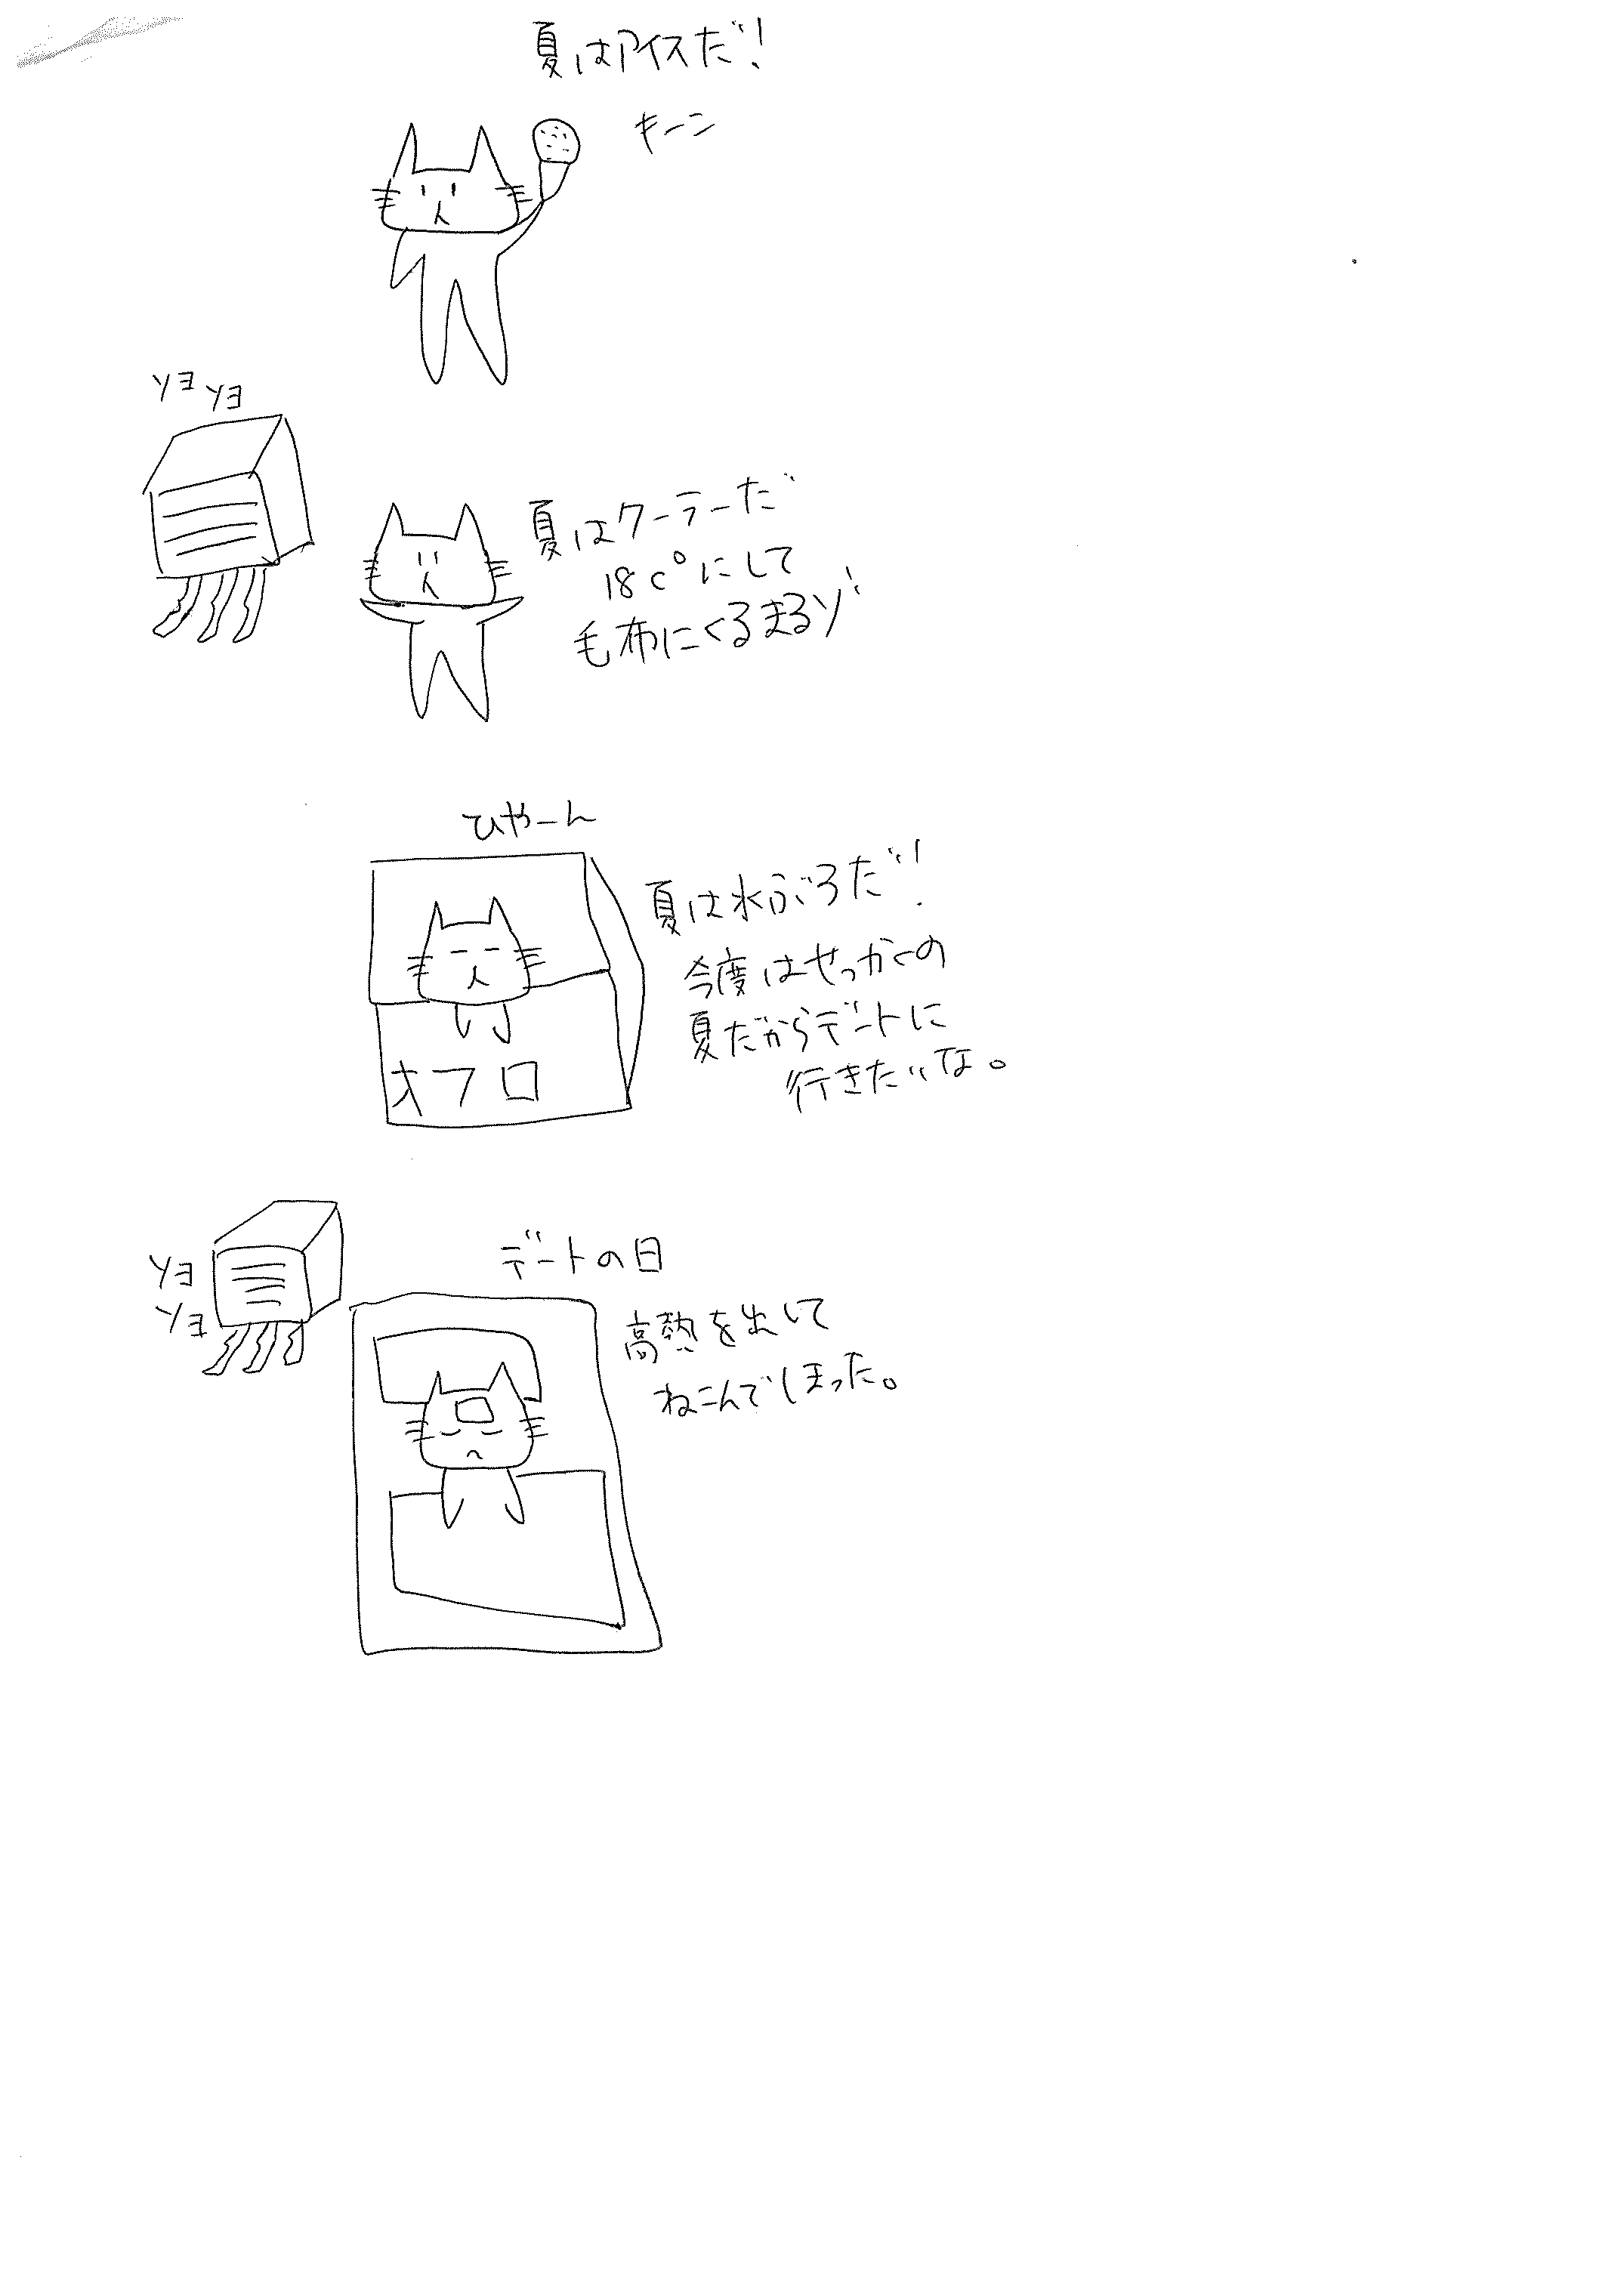 夏はアイスだ!
キーン
ソヨ
ソヨ
夏はクーラーだ
18c°にして
毛布にくるまるゾ
ひやーん
夏は水ぶろだ!
今度はせっかくの
夏だからデートに
行きたいな。
オフロ
ソヨ
ソヨ
デートの日
高熱を出して
ねこんでしまった。